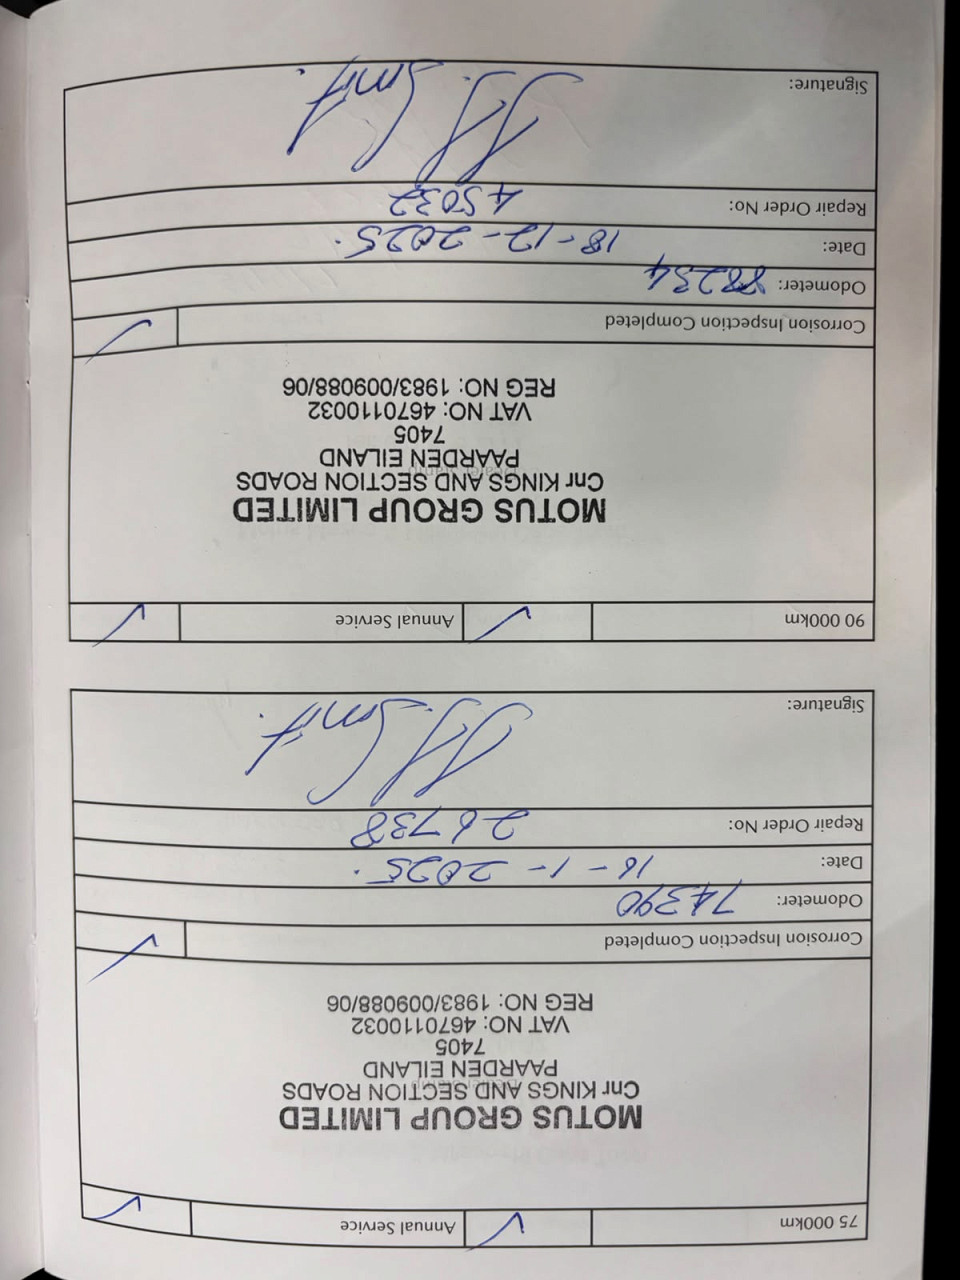 75 000km ✓ Annual Service ✓
MOTUS GROUP LIMITED
Cnr KINGS AND SECTION ROADS
PAARDEN EILAND
7405
VAT NO: 4670110032
REG NO: 1983/009088/06
Corrosion Inspection Completed ✓
Odometer: 74390
Date: 16-1-2025.
Repair Order No: 26738
Signature: JJ Smit.
90 000km ✓ Annual Service ✓
MOTUS GROUP LIMITED
Cnr KINGS AND SECTION ROADS
PAARDEN EILAND
7405
VAT NO: 4670110032
REG NO: 1983/009088/06
Corrosion Inspection Completed ✓
Odometer: 88234
Date: 18-12-2025.
Repair Order No: 45032
Signature: JJ Smit.